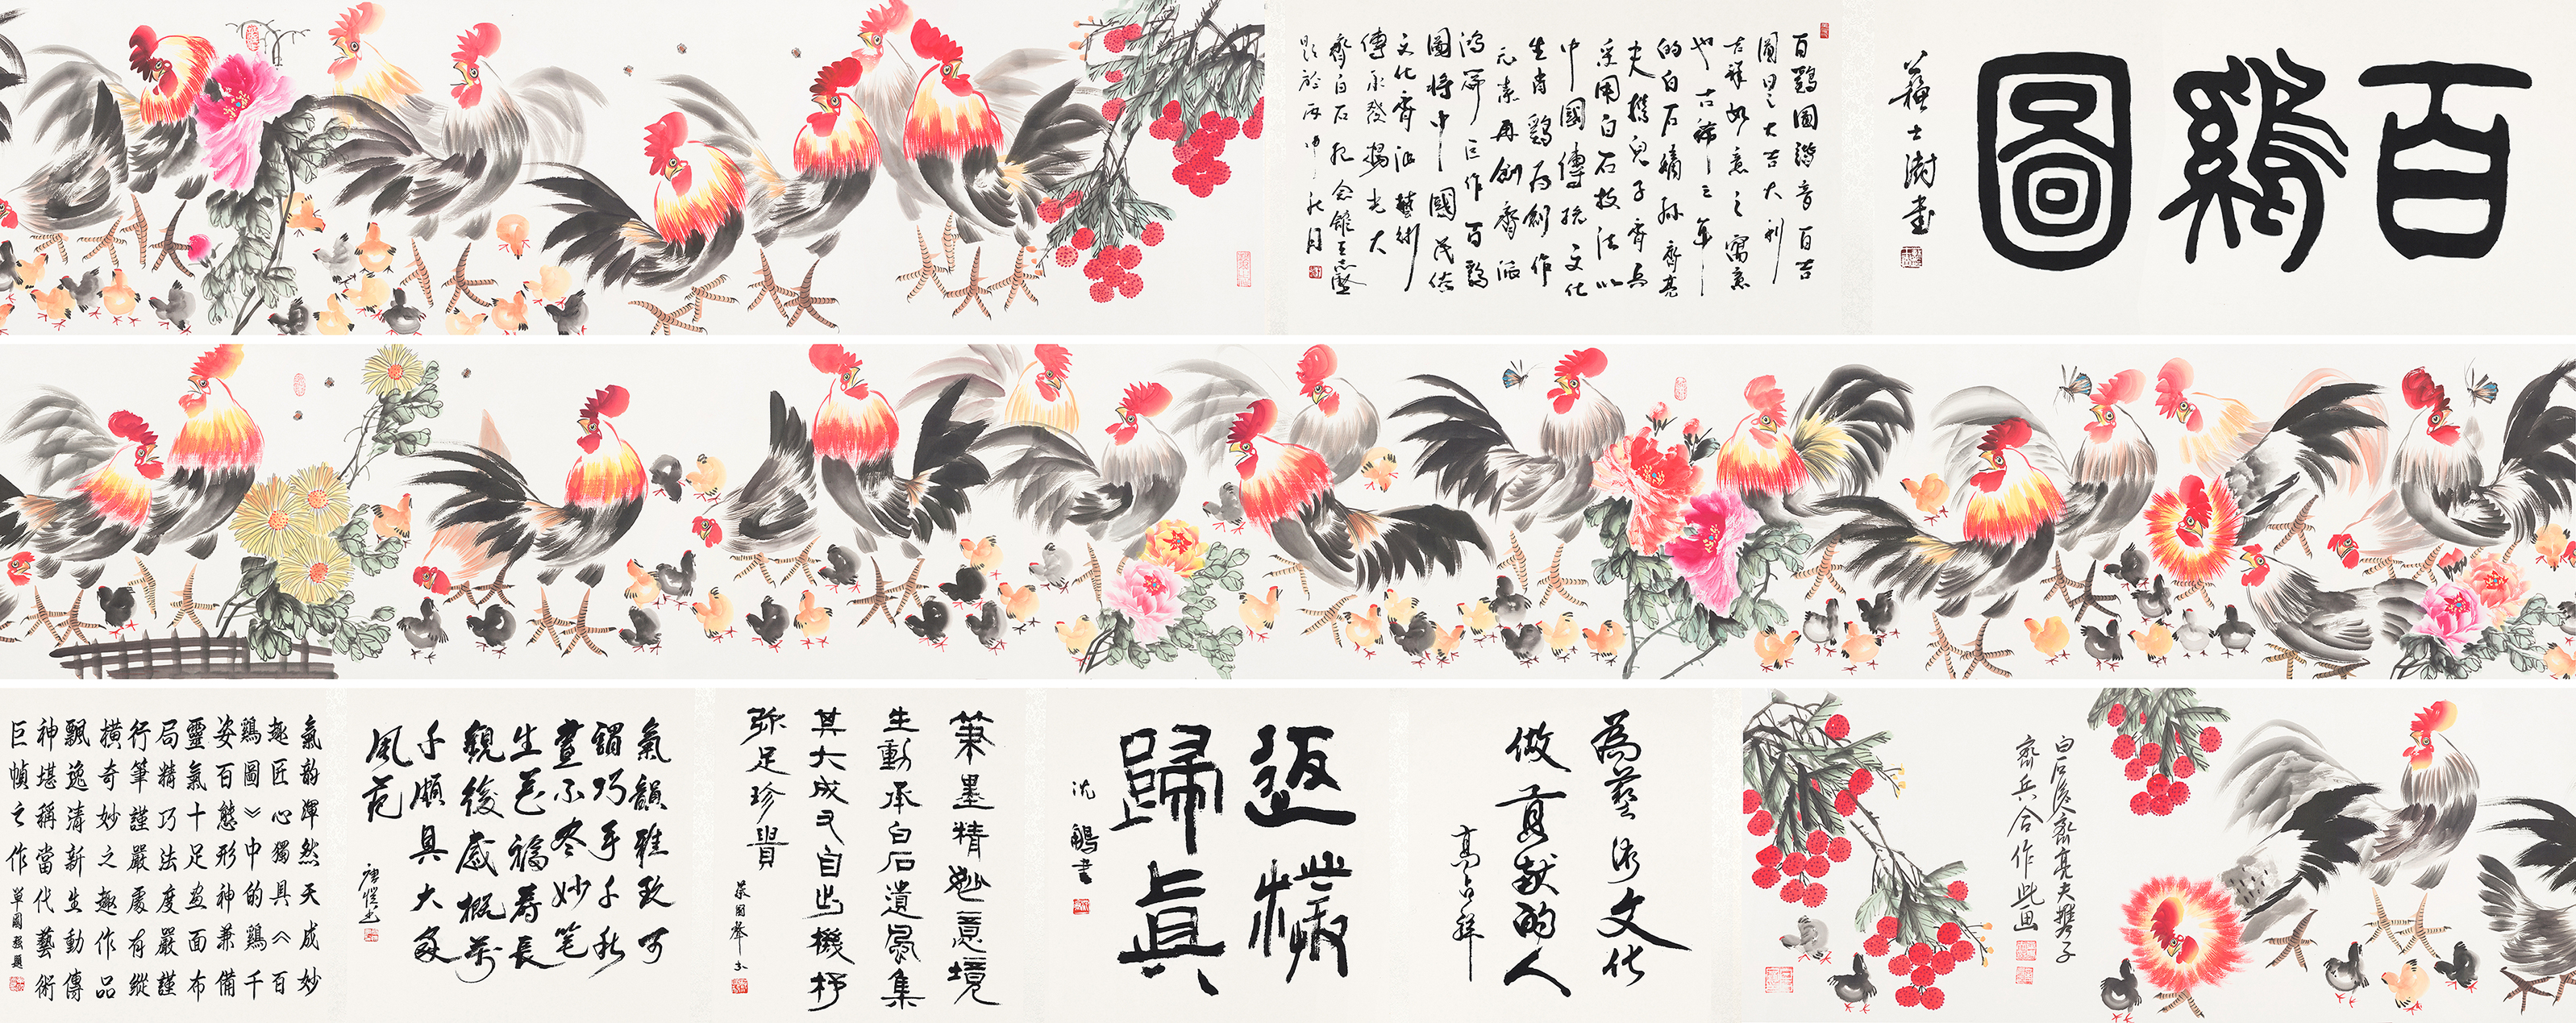 百鷄圖
蘇士澍書
百鷄圖諧音百吉
圖曰之大吉大利
吉祥如意之寓意
也古稀
的白石嫡孫齊亮
夫携兒子齊兵
采用白石技法以
中國傳統文化
生肖鷄為創作
元素再創齊派
鴻篇巨作百鷄
圖將中國民俗
文化齊派藝術
傳承發揚光大
齊白石紀念館王
題於丙申秋月
白石後人齊亮夫攜子
齊兵合作此画
為藝術文化
做貢獻的人
高占祥
返樸
歸真
沈鵬書
筆墨精妙意境
生動承白石遺風集
其大成又自出機杼
弥足珍貴
蔡國聲書
氣韻雅致可
謂巧手千秋
畫不尽妙笔
生花福寿長
觀後感概萬
千頗具大家
風范
氣韵渾然天成妙
趣匠心獨具《百
鷄圖》中的鷄千
姿百態形神兼備
靈氣十足画面布
局精巧法度嚴謹
行筆謹嚴處有縱
橫奇妙之趣作品
飄逸清新生動傳
神堪稱當代藝術
巨幀之作 單國強題